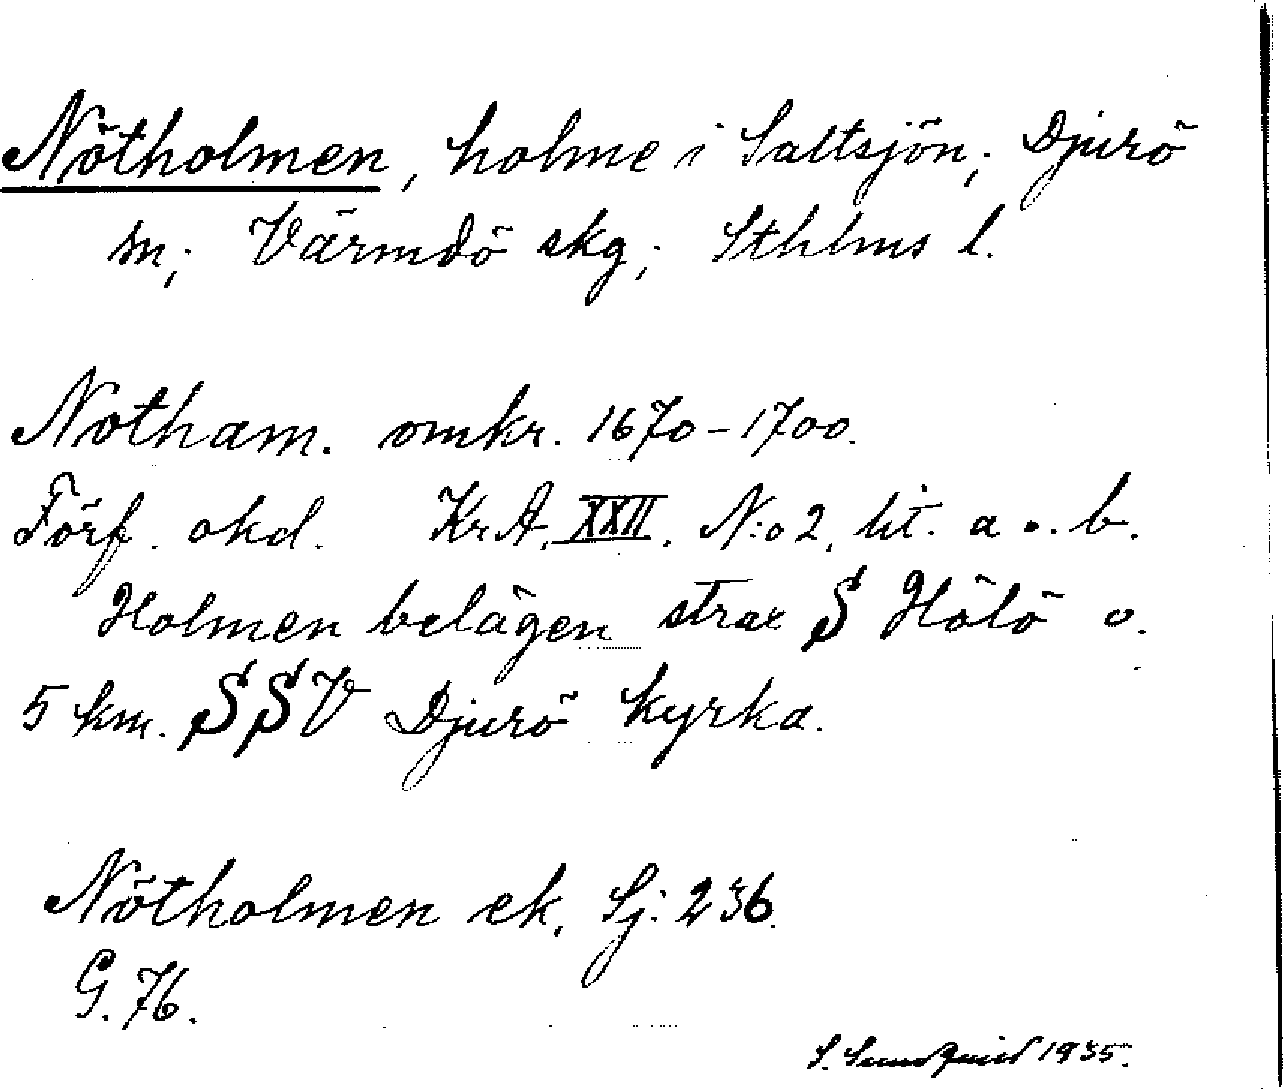 Nötholmen, holme i Saltsjön; Djurö
sn; Värmdö skg; Sthlms l.
Notham. omkr. 1670-1700.
Förf. okd. Kr A. XXII. N:o 2, lit. a o. b.
Holmen belägen strax S Hölö o.
5 km. SSV Djurö kyrka.
Nötholmen ek. Sj: 236.
G. 76.
S. Sundquist 1935.